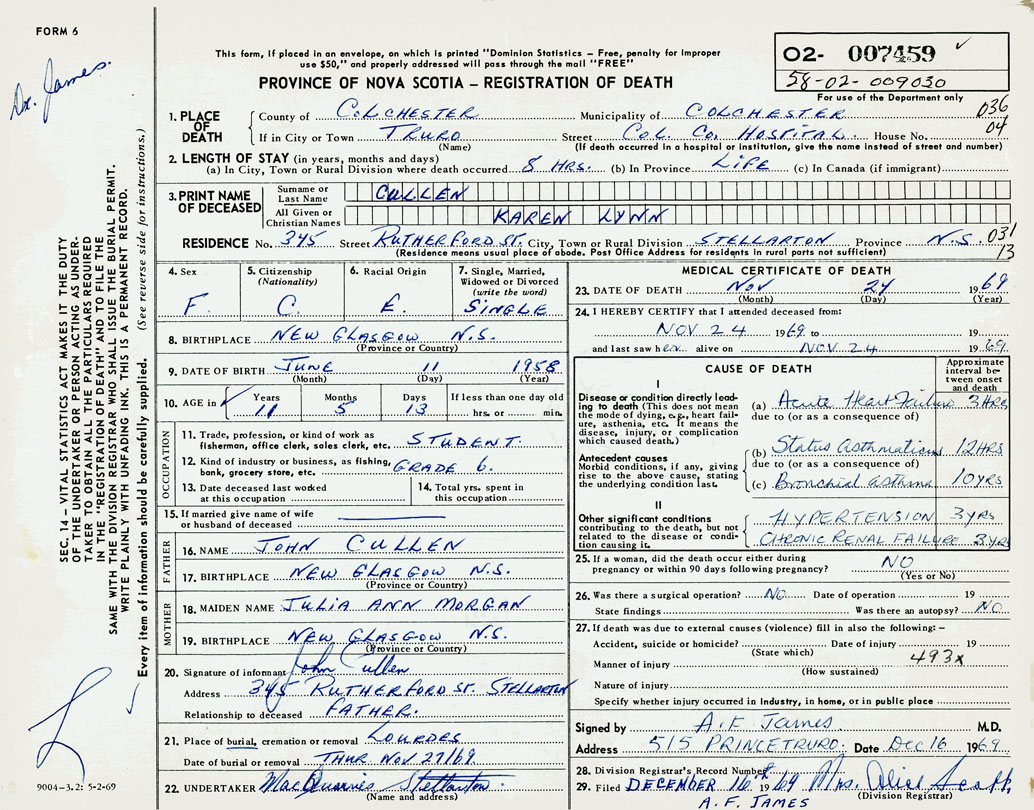 FORM 6
Dr. James.
This form, if placed in an envelope, on which is printed "Dominion Statistics – Free, penalty for improper
use $50," and properly addressed will pass through the mail "FREE"
PROVINCE OF NOVA SCOTIA – REGISTRATION OF DEATH
02- 007459
58-02-009030
For use of the Department only
036
04
1. PLACE OF DEATH
County of COLCHESTER Municipality of COLCHESTER
If in City or Town TRURO Street COL. CO. HOSPITAL. House No.
(Name) (If death occurred in a hospital or institution, give the name instead of street and number)
2. LENGTH OF STAY (in years, months and days)
(a) In City, Town or Rural Division where death occurred 8 HRS. (b) In Province LIFE (c) In Canada (if immigrant)
3. PRINT NAME OF DECEASED
Surname or Last Name CULLEN
All Given or Christian Names KAREN LYNN
RESIDENCE No. 345 Street RUTHERFORD ST. City, Town or Rural Division STELLARTON Province N.S. 031
13
(Residence means usual place of abode. Post Office Address for residents in rural parts not sufficient)
4. Sex
F.
5. Citizenship
(Nationality)
C.
6. Racial Origin
E.
7. Single, Married,
Widowed or Divorced
(write the word)
SINGLE
8. BIRTHPLACE NEW GLASGOW N.S.
(Province or Country)
9. DATE OF BIRTH JUNE 11 1958
(Month) (Day) (Year)
10. AGE in Years Months Days If less than one day old
11 5 13 hrs. or min.
OCCUPATION
11. Trade, profession, or kind of work as
fisherman, office clerk, sales clerk, etc. STUDENT.
12. Kind of industry or business, as fishing,
bank, grocery store, etc. GRADE 6.
13. Date deceased last worked
at this occupation
14. Total yrs. spent in
this occupation
15. If married give name of wife
or husband of deceased
FATHER
16. NAME JOHN CULLEN
17. BIRTHPLACE NEW GLASGOW N.S.
(Province or Country)
MOTHER
18. MAIDEN NAME JULIA ANN MORGAN
19. BIRTHPLACE NEW GLASGOW N.S.
(Province or Country)
20. Signature of informant John Cullen
Address 345 RUTHERFORD ST. STELLARTON
Relationship to deceased FATHER.
21. Place of burial, cremation or removal LOURDES
Date of burial or removal THUR NOV 27/69.
22. UNDERTAKER Stellarton
(Name and address)
MEDICAL CERTIFICATE OF DEATH
23. DATE OF DEATH NOV 24 1969
(Month) (Day) (Year)
24. I HEREBY CERTIFY that I attended deceased from:
NOV 24 1969 to 19
and last saw her alive on NOV. 24 1969.
CAUSE OF DEATH
Approximate
interval be-
tween onset
and death
I
Disease or condition directly lead-
ing to death (This does not mean
the mode of dying, e.g., heart fail-
ure, asthenia, etc. It means the
disease, injury, or complication
which caused death.)
(a) Acute Heart Failure 3 HRS
due to (or as a consequence of)
Antecedent causes
Morbid conditions, if any, giving
rise to the above cause, stating
the underlying condition last.
(b) Status Asthmaticus 12 HRS
due to (or as a consequence of)
(c) Bronchial asthma 10 YRS
II
Other significant conditions
contributing to the death, but not
related to the disease or condi-
tion causing it.
HYPERTENSION 3 yrs
CHRONIC RENAL FAILURE 3 yrs
25. If a woman, did the death occur either during
pregnancy or within 90 days following pregnancy? NO
(Yes or No)
26. Was there a surgical operation? NO. Date of operation 19
State findings Was there an autopsy? NO
27. If death was due to external causes (violence) fill in also the following: –
Accident, suicide or homicide? Date of injury 19
(State which)
Manner of injury 493x
(How sustained)
Nature of injury
Specify whether injury occurred in industry, in home, or in public place
Signed by A. F. James. M.D.
Address 515 PRINCE TRURO. Date Dec 16 1969
28. Division Registrar's Record Number
29. Filed DECEMBER 16th 1969 Mrs. Alice
(Division Registrar)
A. F. JAMES
SEC. 14 – VITAL STATISTICS ACT MAKES IT THE DUTY
OF THE UNDERTAKER OR PERSON ACTING AS UNDER-
TAKER TO OBTAIN ALL THE PARTICULARS REQUIRED
IN THE "REGISTRATION OF DEATH" AND TO FILE THE
SAME WITH THE DIVISION REGISTRAR WHO SHALL ISSUE THE BURIAL PERMIT.
WRITE PLAINLY WITH UNFADING INK. THIS IS A PERMANENT RECORD.
Every item of information should be carefully supplied. (See reverse side for instructions.)
9004-3.2: 5-2-69